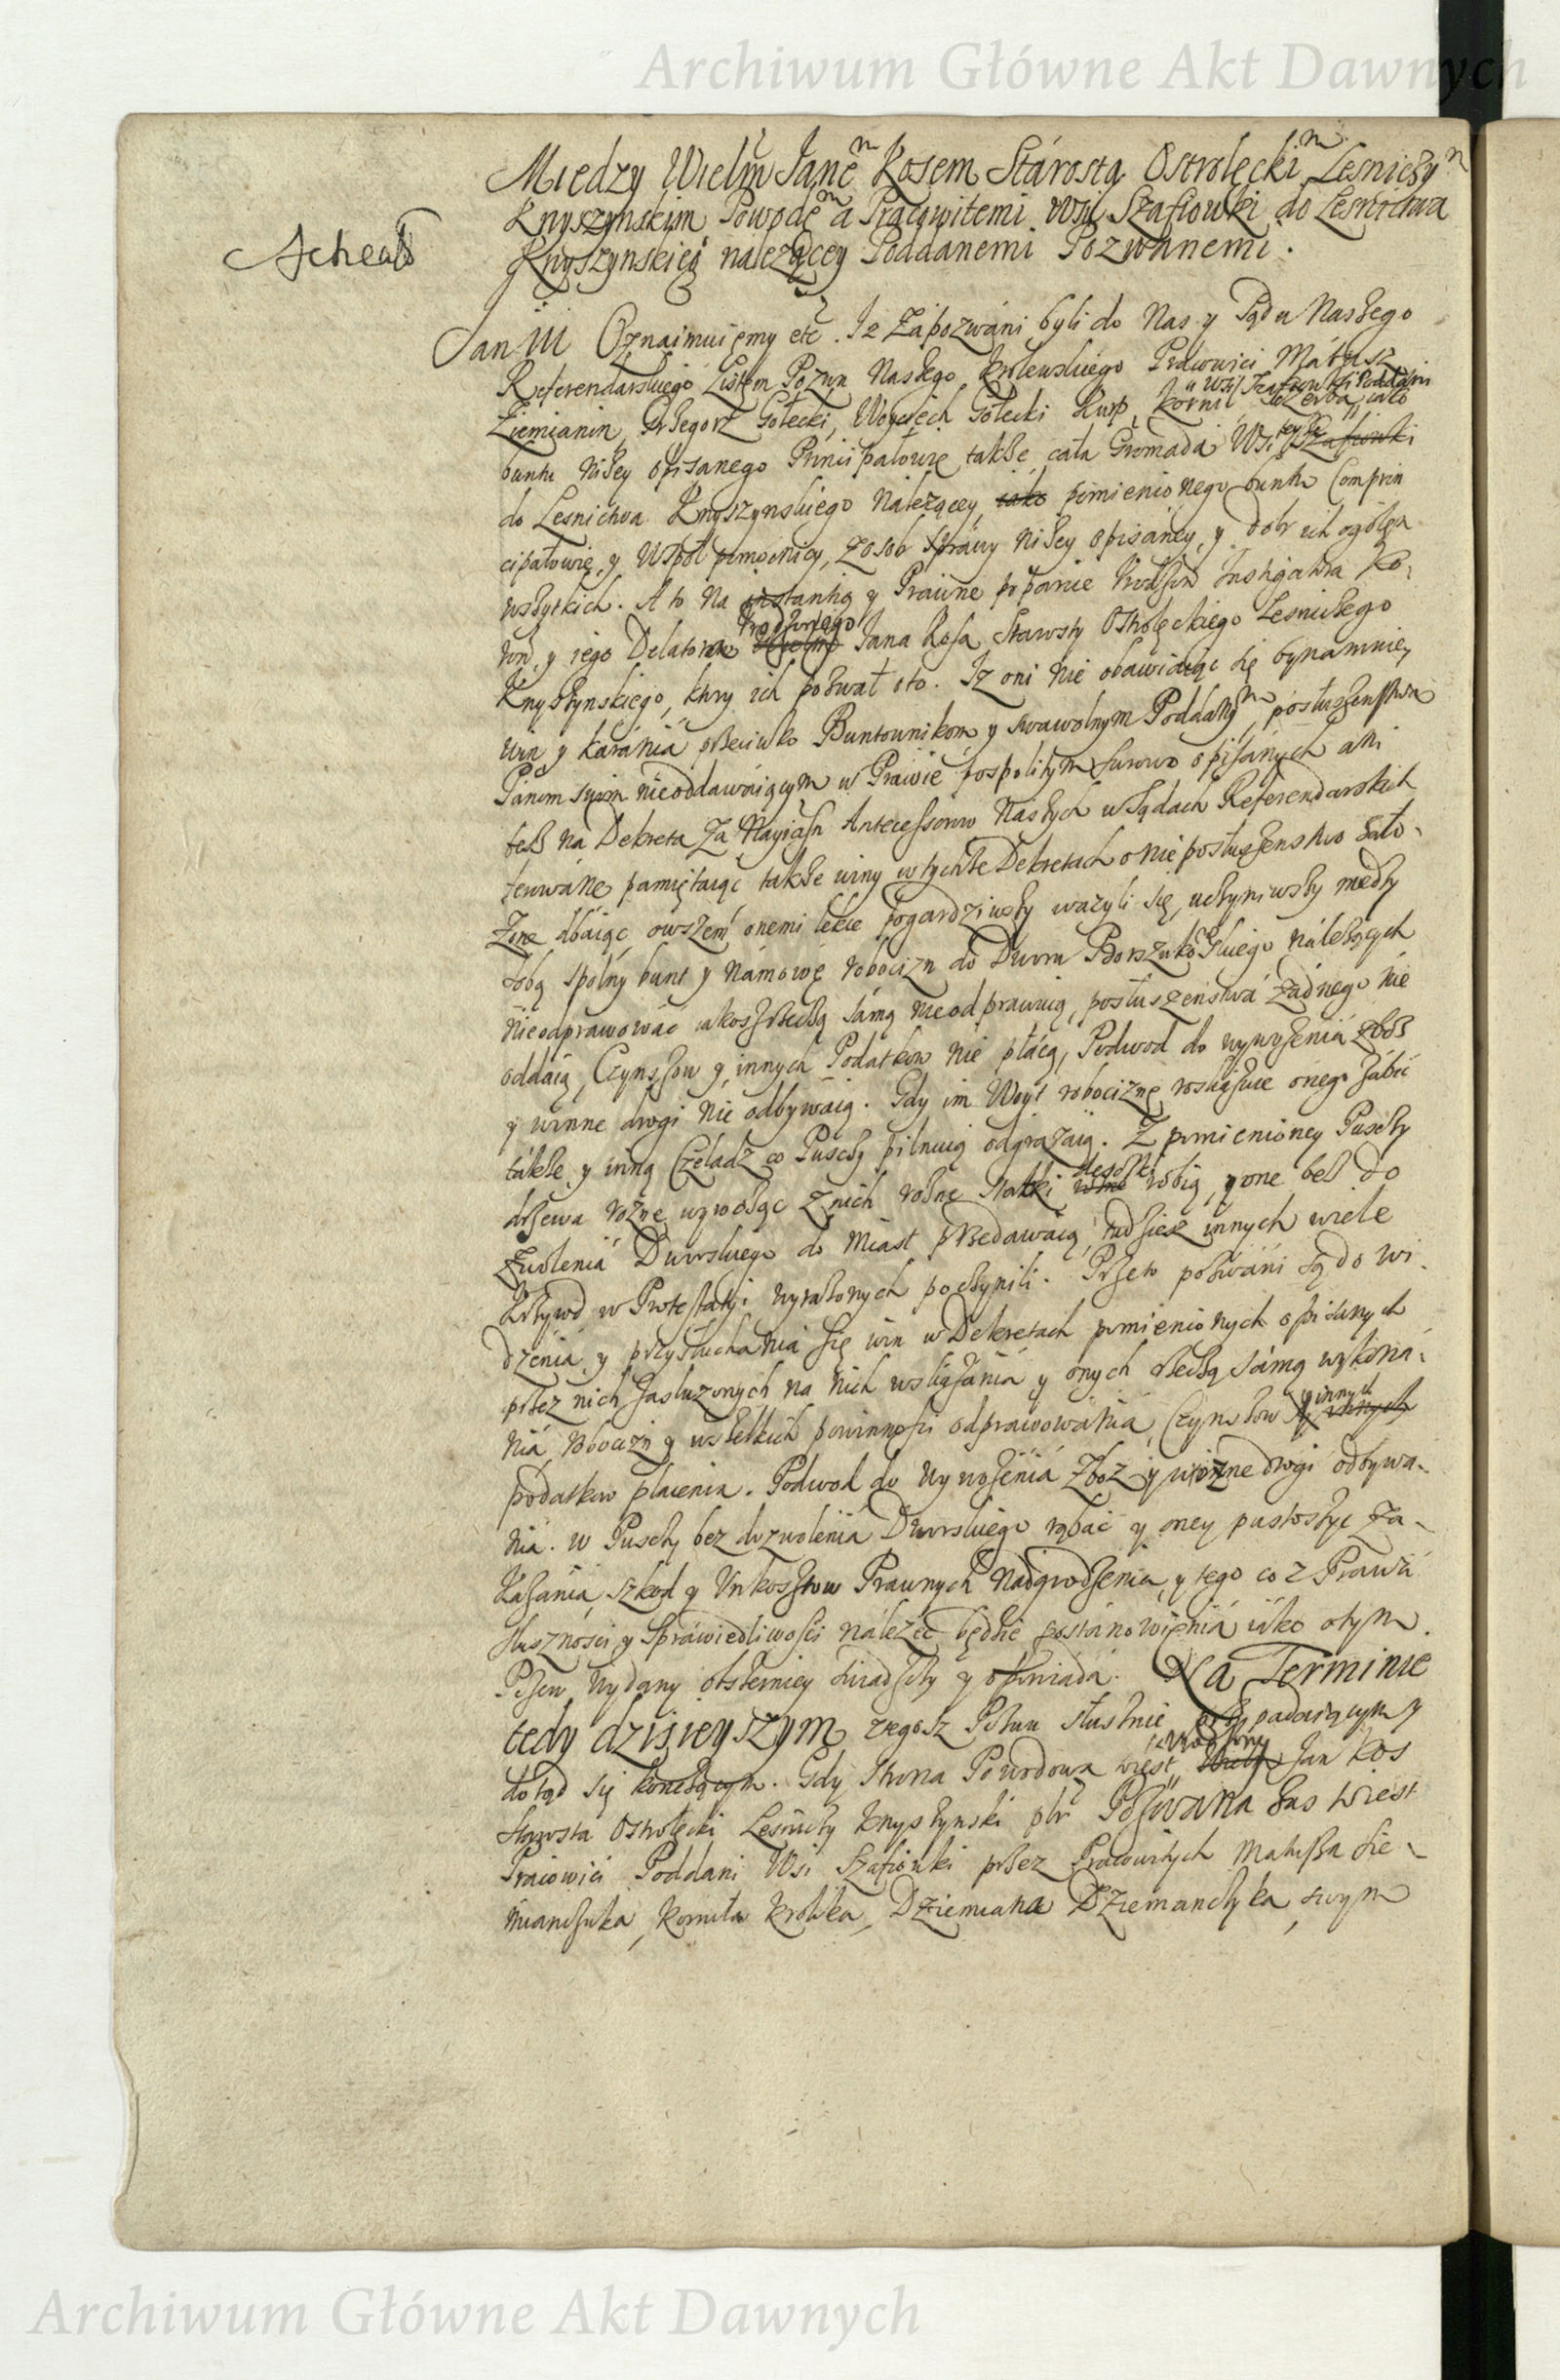 Archiwum Główne Akt Dawnych
Między Wielm Janem Kosem Stárostą Ostrołęckim Lesniczym
Knyszynskim Powodem a Pracowitemi Wsi Szafrowki do Lesnictwa
Knyszynskieg należącey Poddanemi Pozwanemi.
Jan III Oznaimuiemy etc. Iz Zápozwáni byli do Nas y Sądu Naszego
Referendarskiego Listem Pozwu Naszego Krolewskiego Pracowici Mátyasz
Wsi Szafrowki Poddani
Ziemianin, Grzegorz Gołecki, Woyciech Gołecki Kusp, Kornił Szczerba, iáko
buntu niżey opisanego Principałowie także cáła Gromáda Wsi teyże Szafrowki
do Lesnictwa Knyszynskiego Należącey, iáko pomienionego buntu Comprin
cipałowie, y Wspoł pomocnicy, z osob spráwy niżey opisáney, y dobr ich ogołem
wszytkich. A to na instantią y Prawne popárcie Instigatora Ko-
ron, y iego Delatora Urodzonego Jana Kosa Starosty Ostrołęckiego Lesniczego
Knyszynskiego, ktory ich pozwał oto. Iz oni nie obawiáiąc się bynamniey
win y karánia przeciwko Buntownikom y swawolnym Poddanym, posłuszenstwa
Pánom swoim nieoddawáiącym w Práwie pospolitym surowo opisánych áni
tesz na Dekreta Za Nayiásn Antecessorow Naszych w Sądach Referendarskich
ferowáne pamiętaiąc także winy w tychże Dekretach o nieposłuszenstwo záło-
żone dbáiąc, owszem onemi lekce pogardziwszy ważyli się, uczyniwszy między
sobą spolny bunt y námowę robocizn do Dworu należących
nieodprawowáć iakosz rzeczą sámą nieodprawuią, posłuszenstwá żadnego nie
oddáią, Czynszow y innych Podatkow nie płácą, Podwod do wywożeniá zboż
y w inne drogi nie odbywáią. Gdy im Woyt robociznę roskázuie onego zábić
tákże y inną Czeladz co Puszczy pilnuią odgrażáią. Z pomienioney Puszczy
drzewa rożne wywożąc z nich rożne statki robią, y one besz do
zwoleniá Dworskiego do Miast przedawáią, tudziesz innych wiele
krzywd w Protestátyi wyrażonych poczynili. Przeto pozwáni są do wi-
dzenia y przysłuchania się win w Dekretach pomienionych opisanych
przez nich zasłużonych na nich wskázánia y onych rzeczą sámą wykoná-
niá, robocizn y wszelkich powinnosci odprawowánia, Czynszow y innych
podatkow płacenia. Podwod do wywożeniá Zboż y w rożne drogi odbywa-
niá. w Puszczy bez dozwolenia Dworskiego rąbáć y oney pustoszyc Za-
kázánia, szkod y Unkosztow Prawnych Nadgrodzenia, y tego co z Práwá
słusznosci y Spráwiedliwosci náleżeć będzie postánowieniá iáko o tym
Pozew wydany obszerniey swiadczy y opowiáda. Na Terminie
tedy dzisieyszym z tegosz Pozwu słusznie przypadaiącym y
dotąd się konczącym. Gdy Strona Powodowa to iest Urodzony Jan Kos
Starosta Ostrołęcki Lesniczy Knyszynski per Pozwána zas to iest
Pracowici Poddani Wsi Szafrowki przez Pracowitych Matysza Zie-
mianczuka, Korniła Krolika, Dziemiana Dziemanczyka, swym
Archiwum Główne Akt Dawnych